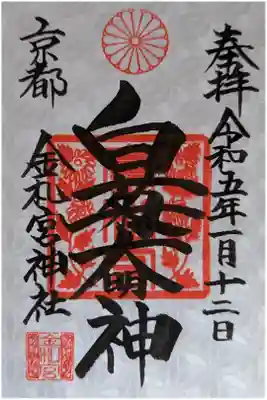 奉拝
令和五年一月十二日
白菊大明神
京都
金札宮神社